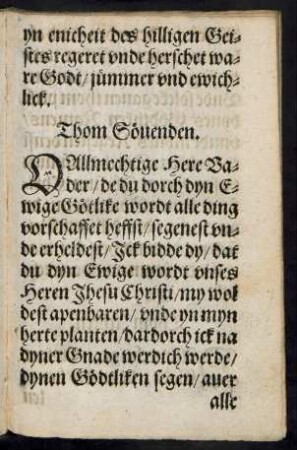 yn enicheit des hilligen Gei⸗
stes regeret vnde herschet wa⸗
re Godt/ jümmer vnd ewich⸗
lick.
Thom Söuenden.
O Allmechtige Here Va⸗
der/ de du dorch dyn E⸗
wige Götlike wordt alle ding
vorschaffet heffst/ segenest vn⸗
de erheldest/ Jck bidde dy/ dat
du dyn Ewige wordt vnses
Heren Jhesu Christi/ my wol
dest apenbaren/ vnde yn myn
herte planten/ dardorch ick na
dyner Gnade werdich werde/
dynen Gödtliken segen/ auer
alle